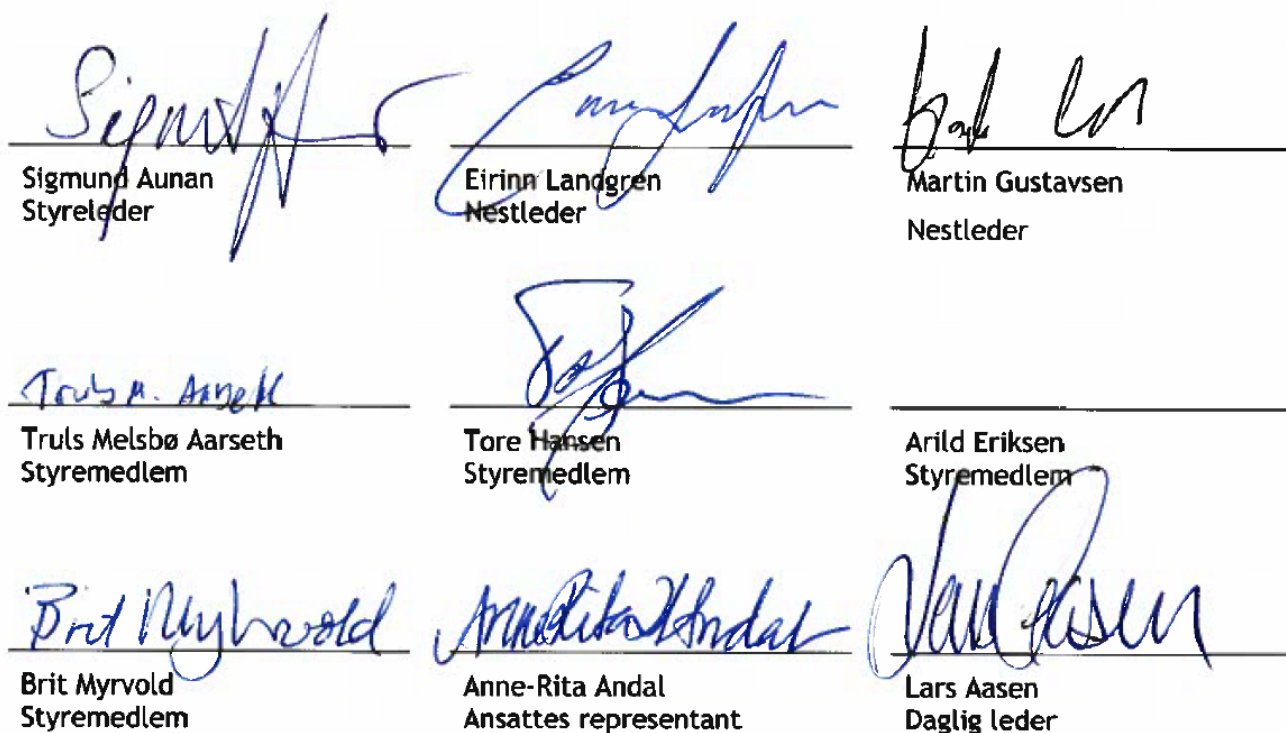 Sigmund Aunan
Styreleder
Eirinn Landgren
Nestleder
Martin Gustavsen
Nestleder
Truls M. Aarseth
Truls Melsbø Aarseth
Styremedlem
Tore Hansen
Styremedlem
Arild Eriksen
Styremedlem
Brit Myrvold
Brit Myrvold
Styremedlem
Anne-Rita Andal
Ansattes representant
Lars Aasen
Lars Aasen
Daglig leder